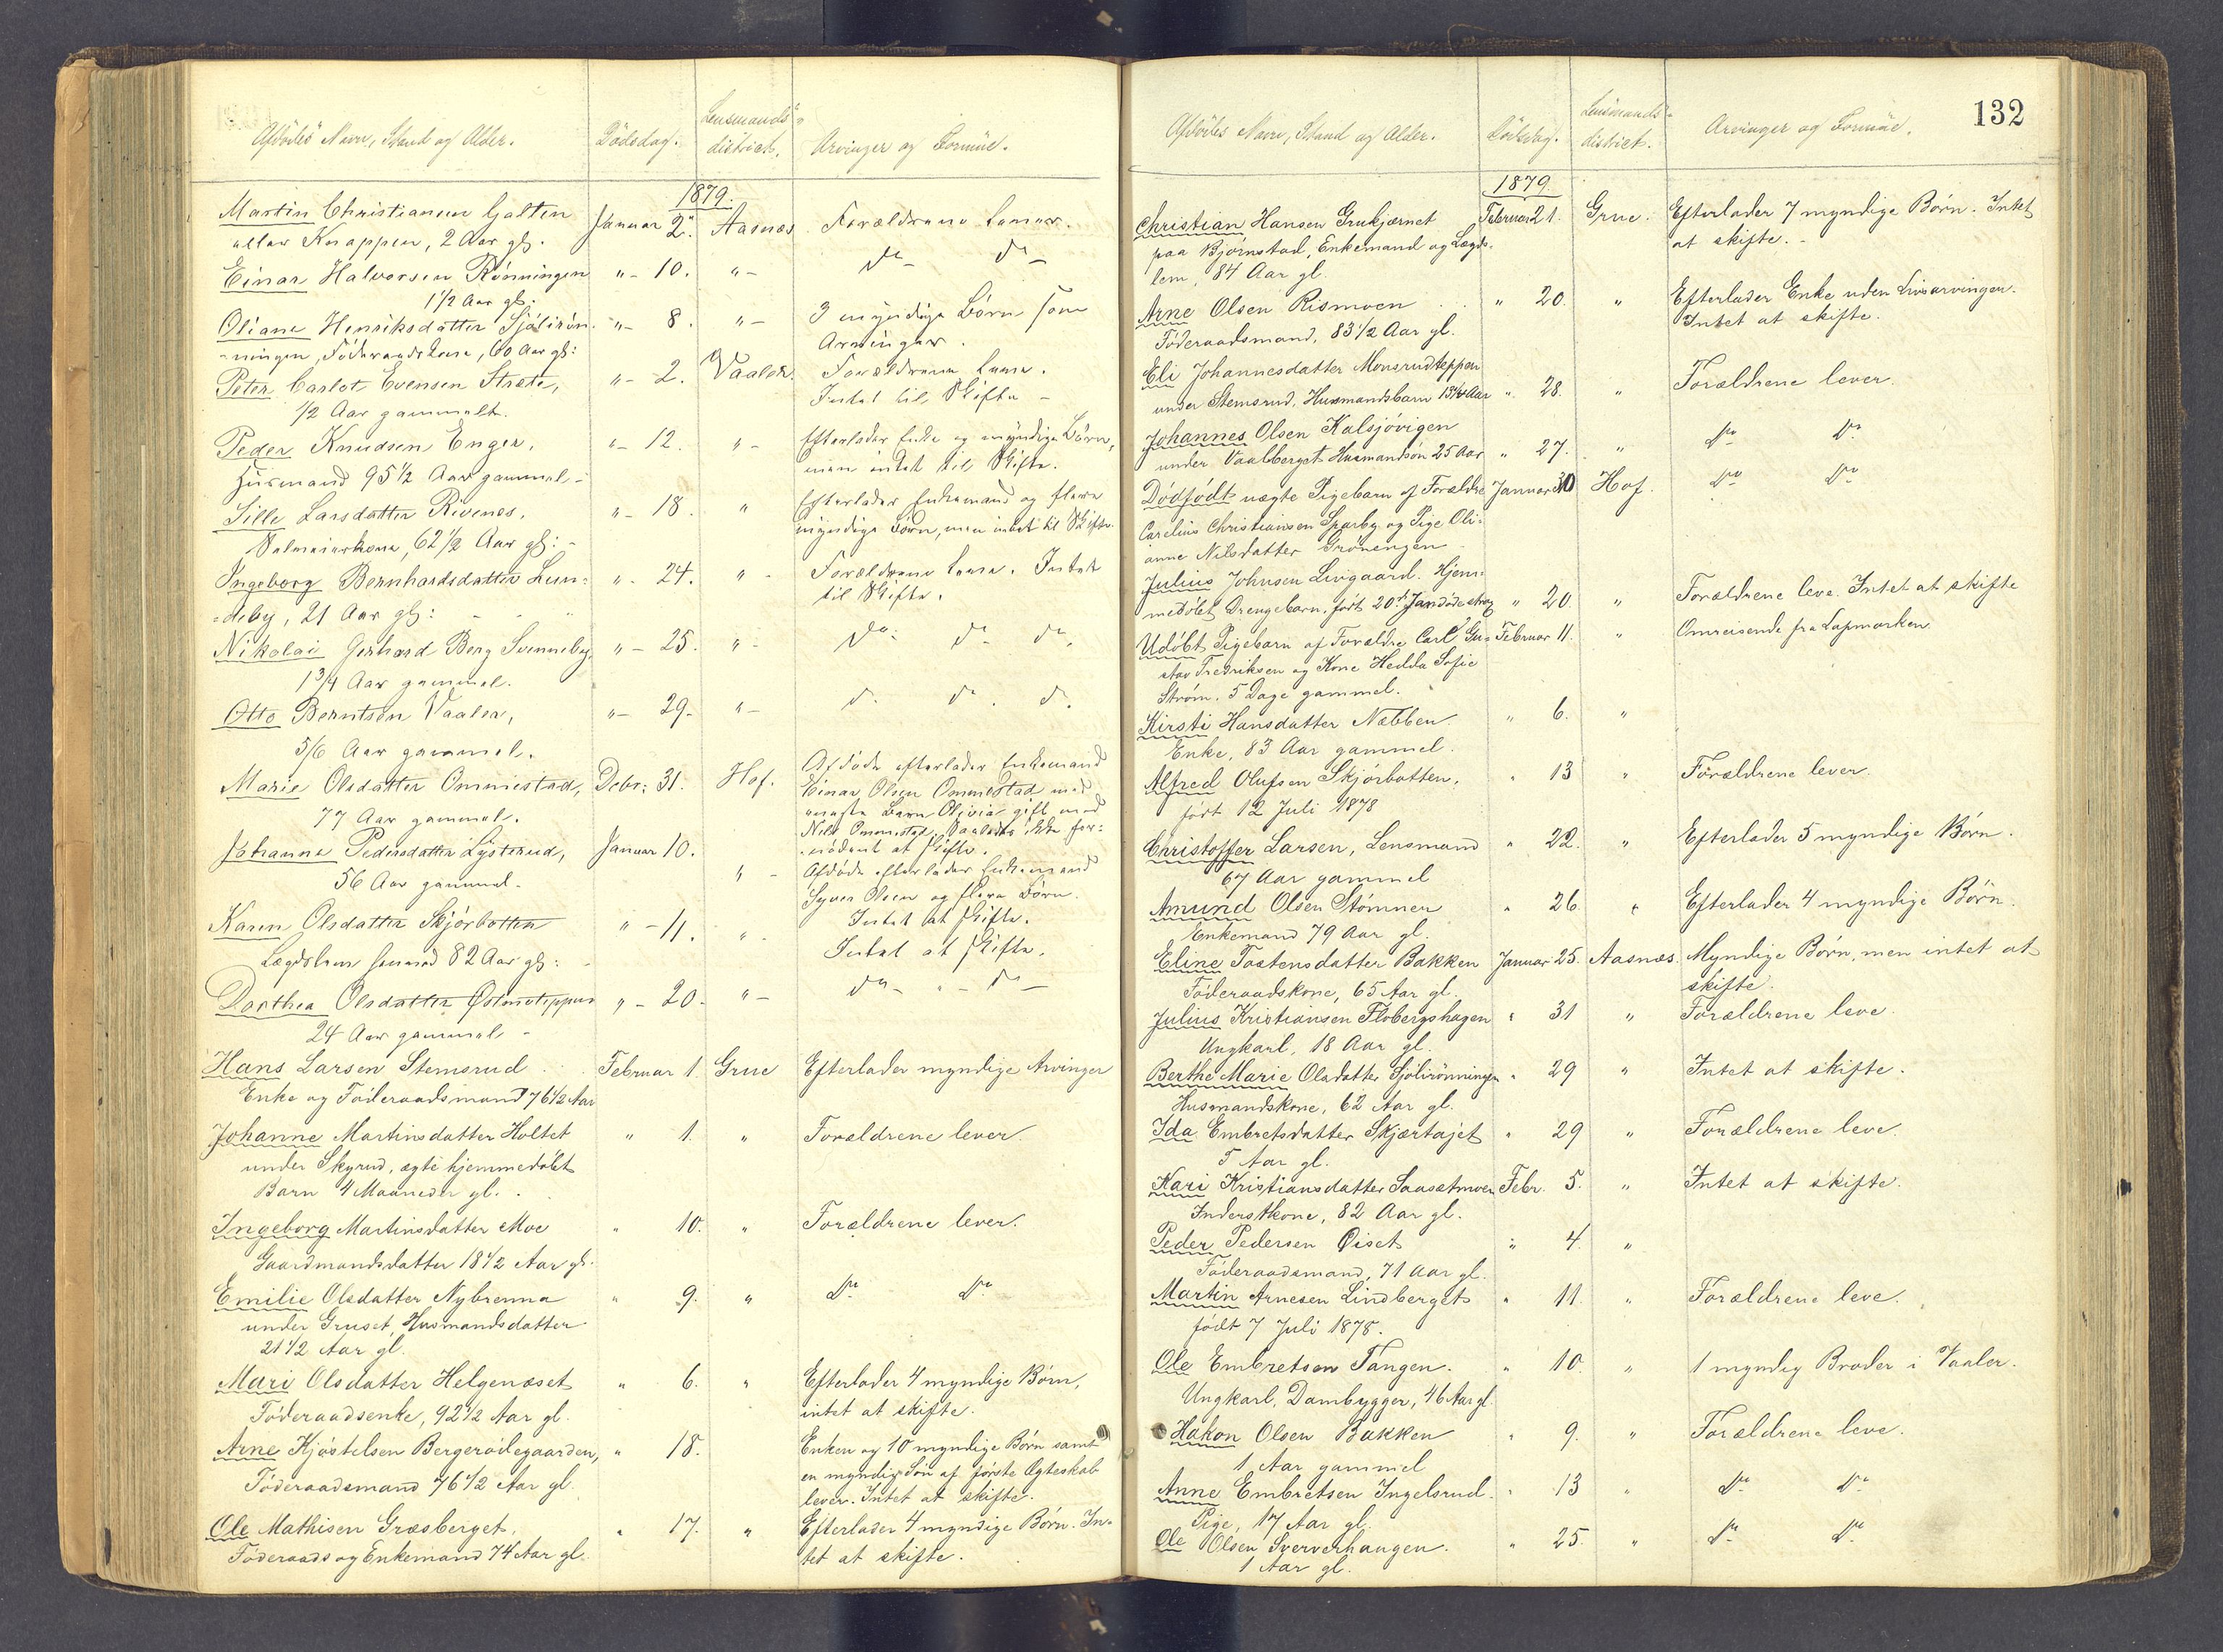 Afdödes Navn, Stand og Alder. Dödsdag. Lensmands- district. Arvinger og Formue.
1879.
Martin Christiansen Galten Januar 2. Aasnæs Forældrene lever.
eller Knappen, 2 Aar gl.
Einar Halvorsen Rönningen "- 10. "- do do
1 1/2 Aar gl.
Oliane Henriksdatter Sjölirön- "- 8. "- 3 myndige Börn som
ningen, Föderaadskone, 60 Aar gl: Arvinger.
Peter Carlot Evensen Stræte, "- 2. Vaaler. Forældrene leve.
1/2 Aar gammelt. Intet til Skifte -
Peder Knudsen Enger, "- 12. "- Efterlader Enke og myndige Börn,
Husmand 95 1/2 Aar gammel - men intet til Skifte.
Sille Larsdatter Rivenes, "- 18. " Efterlader Enkemand og flere
62 1/2 Aar gl: - myndige Börn, men intet til Skifte.
Ingeborg Bernhardsdatter Lun- "- 24. "- Forældrene leve. Intet
deby, 21 Aar gl: til Skifte.
Nikolai Gerhard Berg Svenneby, "- 25. "- do do do
1 3/4 Aar gammel.
Otto Berntsen Vaaler, "- 29. "- do do do
5/6 Aar gammel.
Marie Olsdatter Ommestad, Debr. 31. Hof. Afdöde efterlader Enkemand
77 Aar gammel. Einar Olsen Ommestad med
eneste Barn Olivia gift med
Nils Ommestad. ikke for-
nödent at skifte.
Johanne Pedersdatter Lysterud, Januar 10. "- Afdöde efterlader Enkemand
56 Aar gammel. Syver Olsen og flere Börn.
Intet at skifte.
Karen Olsdatter Skjörbotten "- 11. "- Intet at skifte.
Lægdslem 82 Aar gl:
Dorthea Olsdatter Östmoteppen "- 20. "- do - do
24 Aar gammel -
Hans Larsen Stemsrud Februar 1. Grue Efterlader myndige Arvinger
Enke og Föderaadsmand 76 1/2 Aar
Johanne Martinsdatter Holtet " 1. " Forældrene lever.
under Skyrud, ægte hjemmedöbt
Barn 4 Maaneder gl.
Ingeborg Martinsdatter Moe " 10. " Forældrene lever.
Gaardmandsdatter 18 1/2 Aar gl.
Emilie Olsdatter Nybrenna " 9. " do do
under Gruset, Husmandsdatter
21 1/2 Aar gl.
Mari Olsdatter Helgenæset " 6. " Efterlader 4 myndige Börn,
Föderaadsenke, 92 1/2 Aar gl. intet at skifte.
Arne Kjöstelsen Bergeröilegaarden, " 18. Enken og 10 myndige Börn samt
Föderaadsmand 76 1/2 Aar gl. en myndig Sön af förste Ægteskab
lever. Intet at skifte.
Ole Mathisen Græsberget, " 17. " Efterlader 4 myndige Börn. In-
Föderaads og Enkemand 74 Aar gl. tet at skifte.
132
Afdödes Navn, Stand og Alder. Dödsdag. Lensmands- district. Arvinger og Formue.
1879.
Christian Hansen Grukjærnet Februar 21. Grue. Efterlader 7 myndige Börn. Intet
paa Björnstad, Enkemand og Lægds- at skifte. -
lem, 84 Aar gl.
Arne Olsen Rismoen " 20. " Efterlader Enke uden Livsarvinger.
Föderaadsmand, 83 1/2 Aar gl. Intet at skifte.
Eli Johannesdatter Monsrudteppen
under Stemsrud, Husmandsbarn 13 1/4 Aar " 28. " Forældrene lever.
Johannes Olsen Kalsjövigen
under Vaalberget Husmandsön 25 Aar " 27. " do do
Dödfödt uægte Pigebarn af Forældre Januar 30 Hof. do do
Carelius Christiansen Sparby og Pige Oli-
anne Nilsdatter Grönengen
Julius Johnsen Livgaard. Hjem-
medöbt Drengebarn, fört 20de Jan döde strax " 20. " Forældrene leve. Intet at skifte
Udöbt Pigebarn af Forældre Carl Gu- Februar 11. " Omreisende fra Lapmarken
stav Fredriksen og Kone Hedda Sofie
Ström. 5 Dage gammel.
Kirsti Hansdatter Næbben " 6. "
Enke, 83 Aar gammel.
Alfred Olufsen Skjörbotten, " 13 " Forældrene lever.
fört 12 Juli 1878
Christoffer Larsen, Lensmand " 22. " Efterlader 5 myndige Börn.
67 Aar gammel
Amund Olsen Stömner " 26. " Efterlader 4 myndige Börn.
Enkemand 79 Aar gl.
Eline Tostensdatter Bakken Januar 25. Aasnæs. Myndige Börn, men intet at
Föderaadskone, 65 Aar gl. skifte.
Julius Kristiansen Flobergshagen " 31 " Forældrene leve.
Ungkarl, 18 Aar gl.
Berthe Marie Olsdatter Sjölirönningen " 29 " Intet at skifte.
Husmandskone, 62 Aar gl.
Ida Embretsdatter Skjærtajet " 29 " Forældrene leve.
5 Aar gl.
Kari Kristiansdatter Saasætmoen Febr. 5. " Intet at skifte.
Inderstkone, 82 Aar gl.
Peder Pedersen Öiset " 4. "
Föderaadsmand, 71 Aar gl.
Martin Arnesen Lindberget " 11. " Forældrene leve.
födt 7 Juli 1878.
Ole Embretsen Tangen. " 10. " 1 myndig Broder i Vaaler.
Ungkarl, Dambygger, 46 Aar gl.
Hakon Olsen Bakken " 9. " Forældrene leve.
1 Aar gammel
Anne Embretsen Ingelsrud. " 13 " do do
Pige, 17 Aar gl.
Ole Olsen Sververhaugen. " 25. " do do
1 Aar gl.